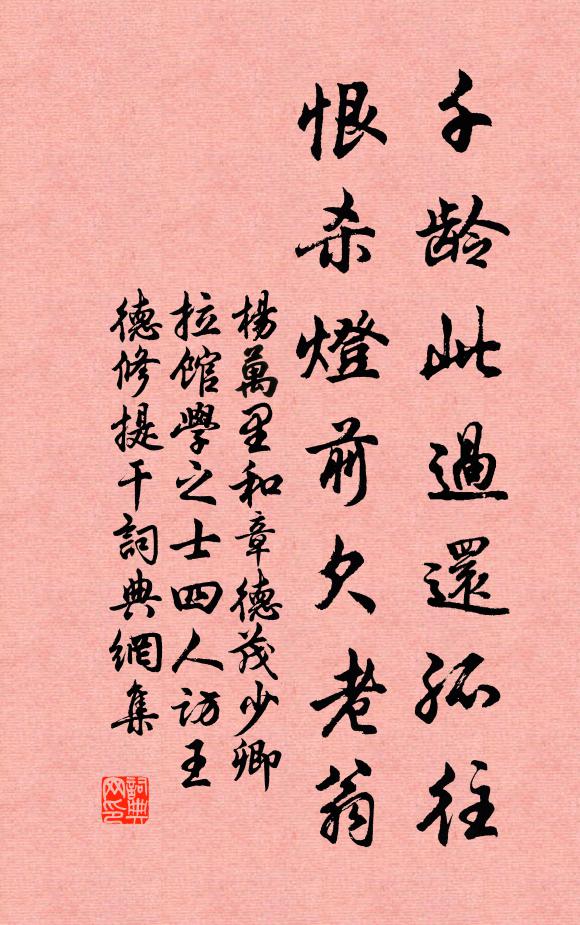 千龄此過還孤往
恨杀燈前欠老翁
楊萬里和章德茂少卿
拉館學之士四人访王
德修提干詞典網集
詞典网印